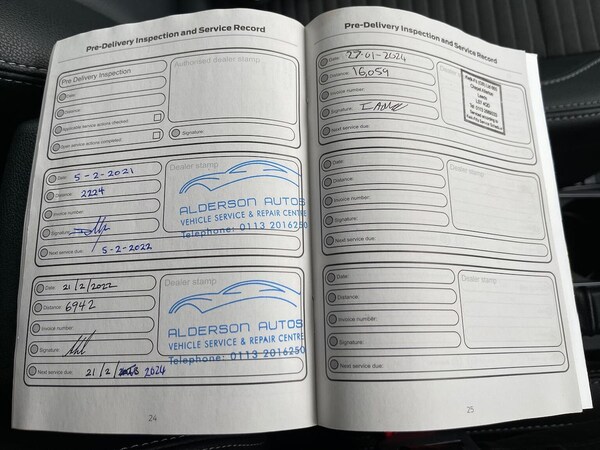 Pre-Delivery Inspection and Service Record
Pre Delivery Inspection
Authorised dealer stamp
Date:
Distance:
Applicable service actions checked:
Open service actions completed:
Signature:
Date: 5-2-2021
Dealer stamp
Distance: 2224
Invoice number:
Signature:
Next service due: 5-2-2022
ALDERSON AUTOS
VEHICLE SERVICE & REPAIR CENTRE
Telephone: 0113 2016250
Date: 21/2/2022
Dealer stamp
Distance: 6942
Invoice number:
Signature:
Next service due: 21/2/ 2024
ALDERSON AUTOS
VEHICLE SERVICE & REPAIR CENTRE
Telephone: 0113 2016250
24
Pre-Delivery Inspection and Service Record
Date: 27-01-2024
Distance: 16,059
Invoice number:
Signature:
Next service due:
Leeds
Date:
Dealer stamp
Distance:
Invoice number:
Signature:
Next service due:
Date:
Dealer stamp
Distance:
Invoice number:
Signature:
Next service due:
25